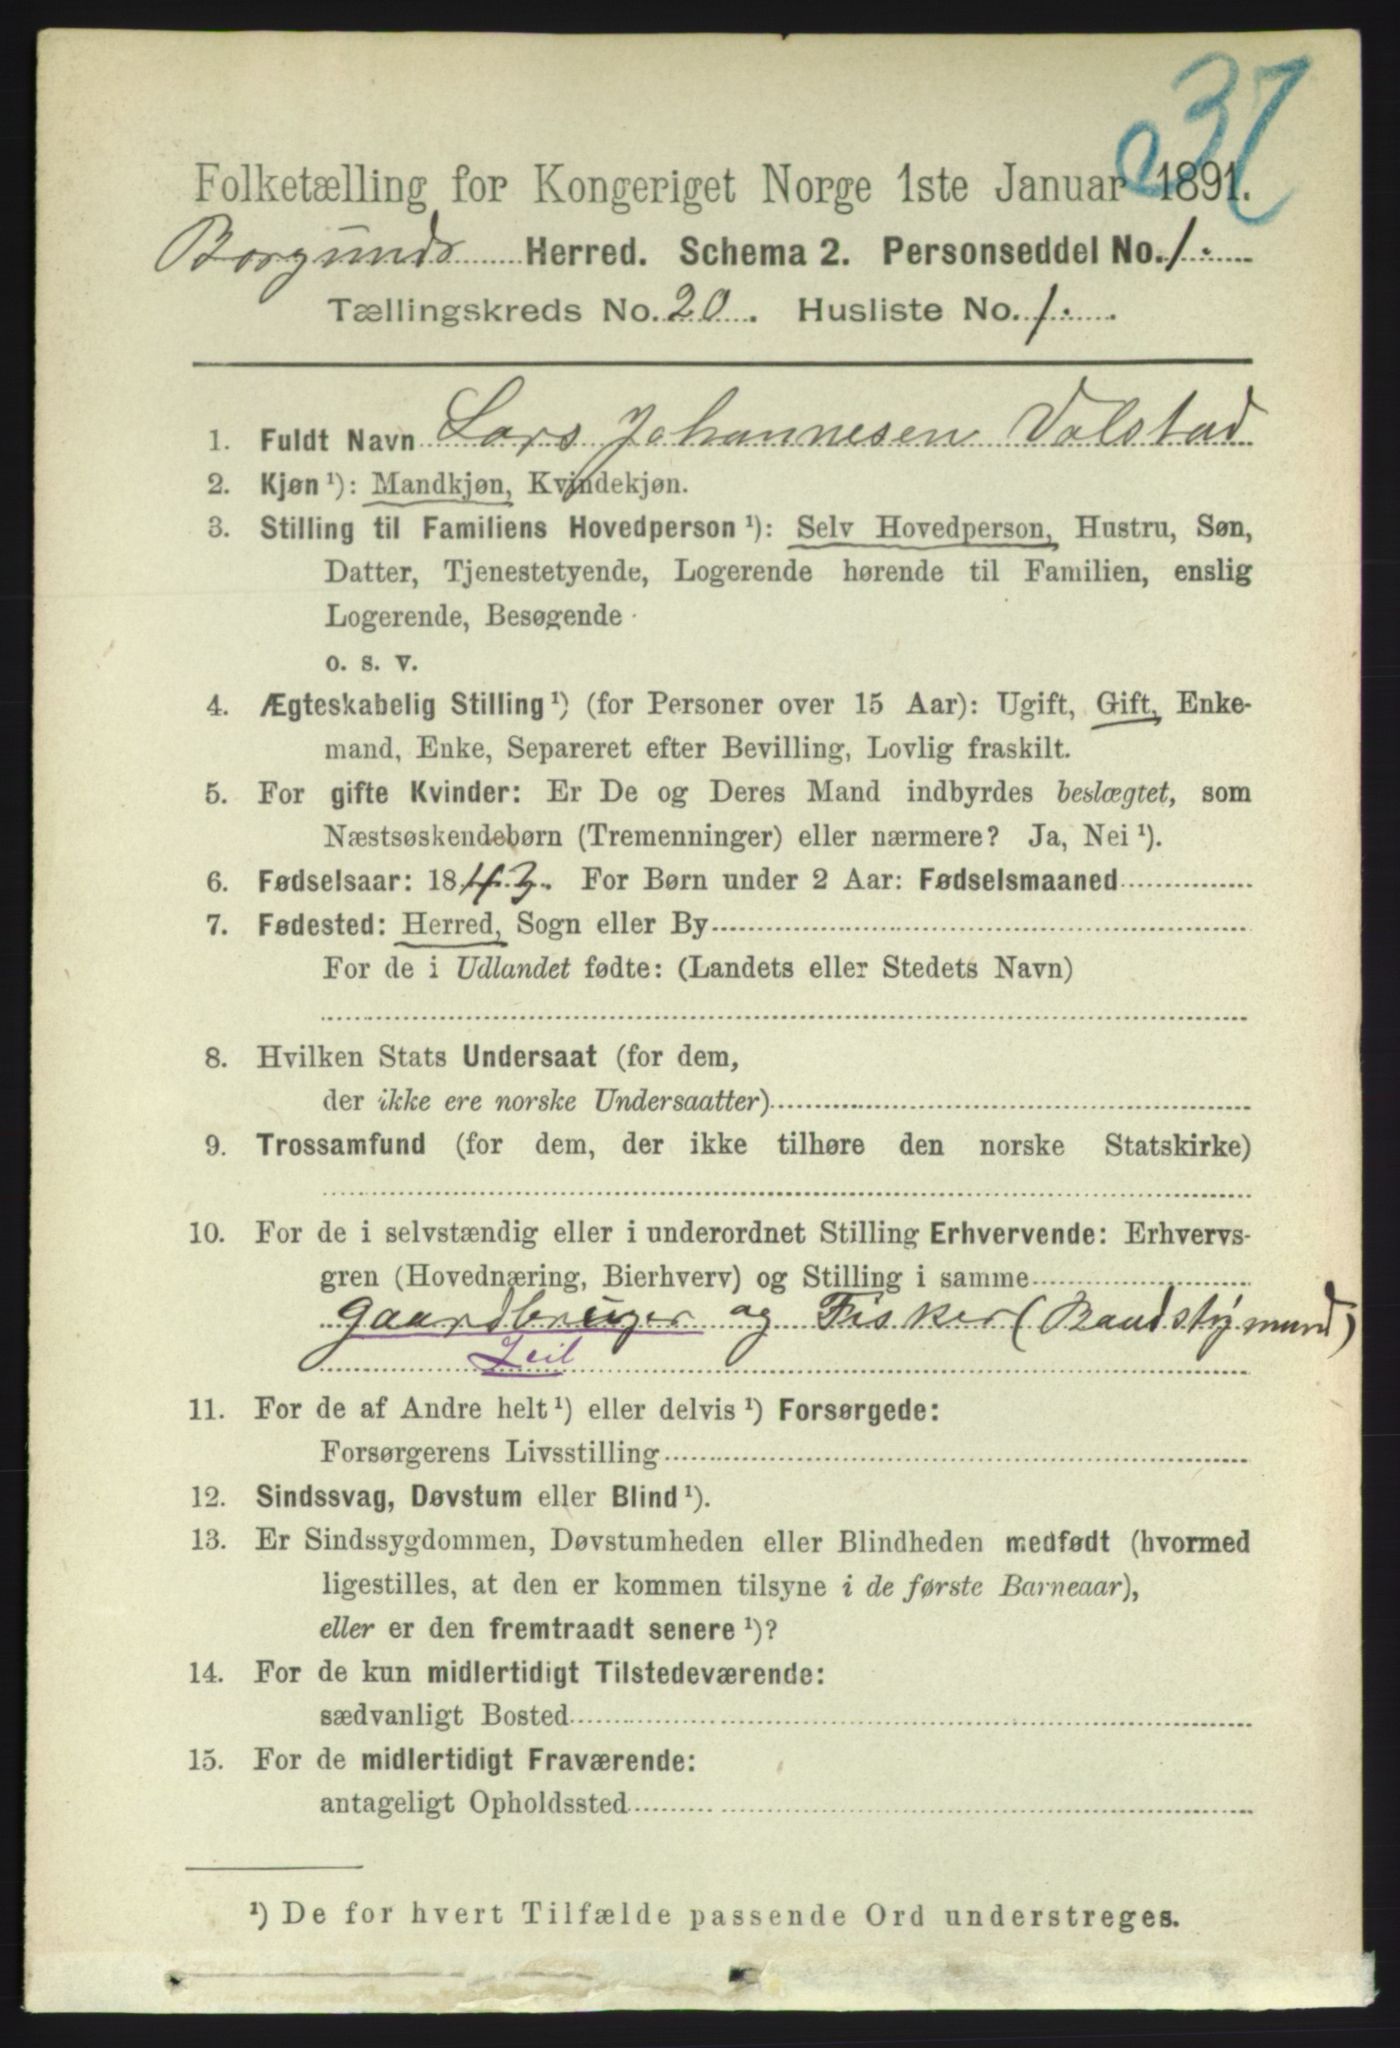 37
Folketælling for Kongeriget Norge 1ste Januar 1891.
Borgunds Herred. Schema 2. Personseddel No. 1.
Tællingskreds No. 20. Husliste No. 1.
1. Fuldt Navn Lars Johannesen Valstad
2. Kjøn ¹): Mandkjøn, Kvindekjøn.
3. Stilling til Familiens Hovedperson ¹): Selv Hovedperson, Hustru, Søn,
Datter, Tjenestetyende, Logerende hørende til Familien, enslig
Logerende, Besøgende
o. s. v.
4. Ægteskabelig Stilling ¹) (for Personer over 15 Aar): Ugift, Gift, Enke-
mand, Enke, Separeret efter Bevilling, Lovlig fraskilt.
5. For gifte Kvinder: Er De og Deres Mand indbyrdes beslægtet, som
Næstsøskendebørn (Tremenninger) eller nærmere? Ja, Nei ¹).
6. Fødselsaar: 1843. For Børn under 2 Aar: Fødselsmaaned
7. Fødested: Herred, Sogn eller By
For de i Udlandet fødte: (Landets eller Stedets Navn)
8. Hvilken Stats Undersaat (for dem,
der ikke ere norske Undersaatter)
9. Trossamfund (for dem, der ikke tilhøre den norske Statskirke)
10. For de i selvstændig eller i underordnet Stilling Erhvervende: Erhvervs-
gren (Hovednæring, Bierhverv) og Stilling i samme
Gaardbruger og Fisker (
11. For de af Andre helt ¹) eller delvis ¹) Forsørgede:
Forsørgerens Livsstilling
12. Sindssvag, Døvstum eller Blind ¹).
13. Er Sindssygdommen, Døvstumheden eller Blindheden medfødt (hvormed
ligestilles, at den er kommen tilsyne i de første Barneaar),
eller er den fremtraadt senere ¹)?
14. For de kun midlertidigt Tilstedeværende:
sædvanligt Bosted
15. For de midlertidigt Fraværende:
antageligt Opholdssted
¹) De for hvert Tilfælde passende Ord understreges.